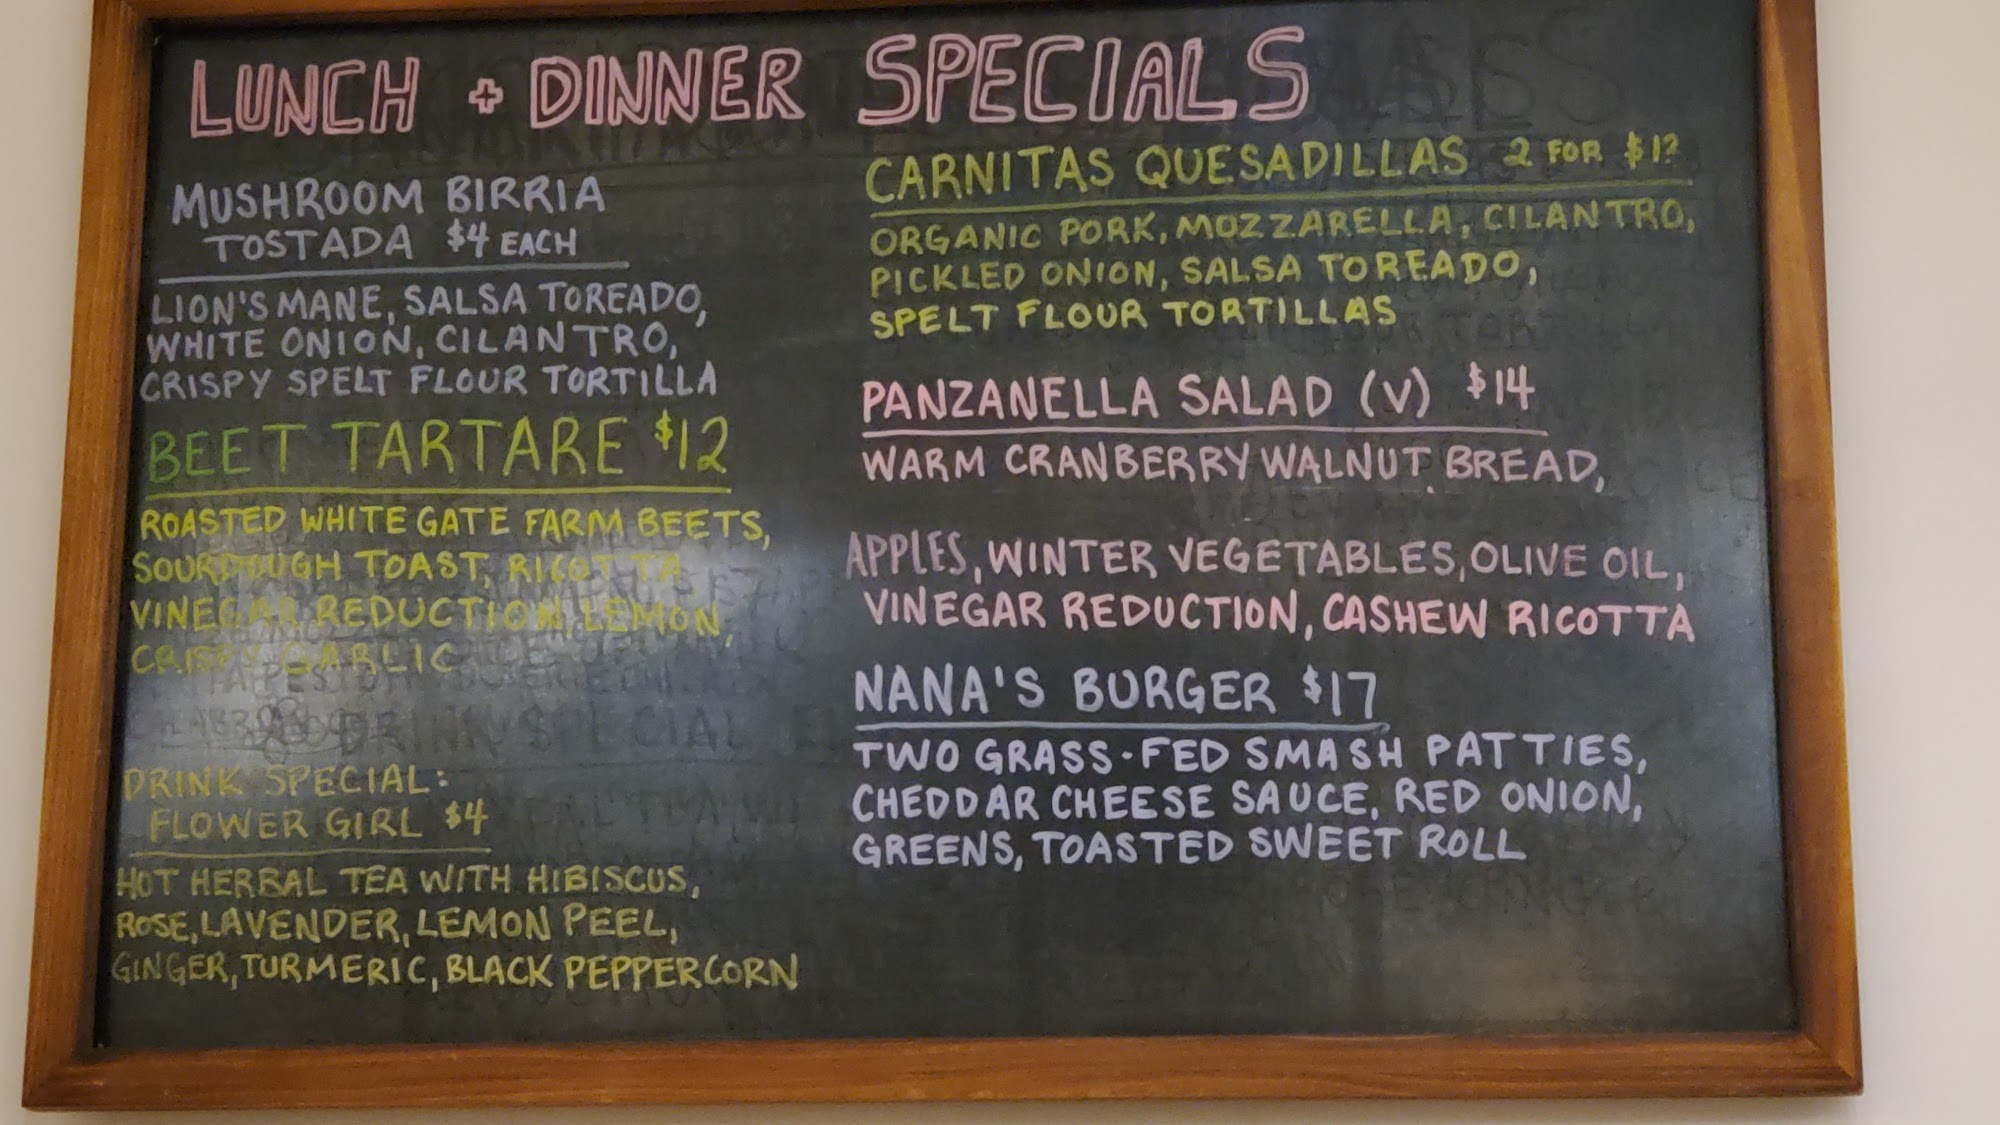 LUNCH + DINNER SPECIALS
MUSHROOM BIRRIA
TOSTADA $4 EACH
LION'S MANE, SALSA TOREADO,
WHITE ONION, CILANTRO,
CRISPY SPELT FLOUR TORTILLA
BEET TARTARE $12
ROASTED WHITE GATE FARM BEETS,
SOURDOUGH TOAST, RICOTTA
VINEGAR REDUCTION, LEMON,
CRISPY GARLIC
DRINK SPECIAL:
FLOWER GIRL $4
HOT HERBAL TEA WITH HIBISCUS,
ROSE, LAVENDER, LEMON PEEL,
GINGER, TURMERIC, BLACK PEPPERCORN
CARNITAS QUESADILLAS 2 FOR
ORGANIC PORK, MOZZARELLA, CILANTRO,
PICKLED ONION, SALSA TOREADO,
SPELT FLOUR TORTILLAS
PANZANELLA SALAD (V) $14
WARM CRANBERRY WALNUT BREAD,
APPLES, WINTER VEGETABLES, OLIVE OIL,
VINEGAR REDUCTION, CASHEW RICOTTA
NANA'S BURGER $17
TWO GRASS-FED SMASH PATTIES,
CHEDDAR CHEESE SAUCE, RED ONION,
GREENS, TOASTED SWEET ROLL